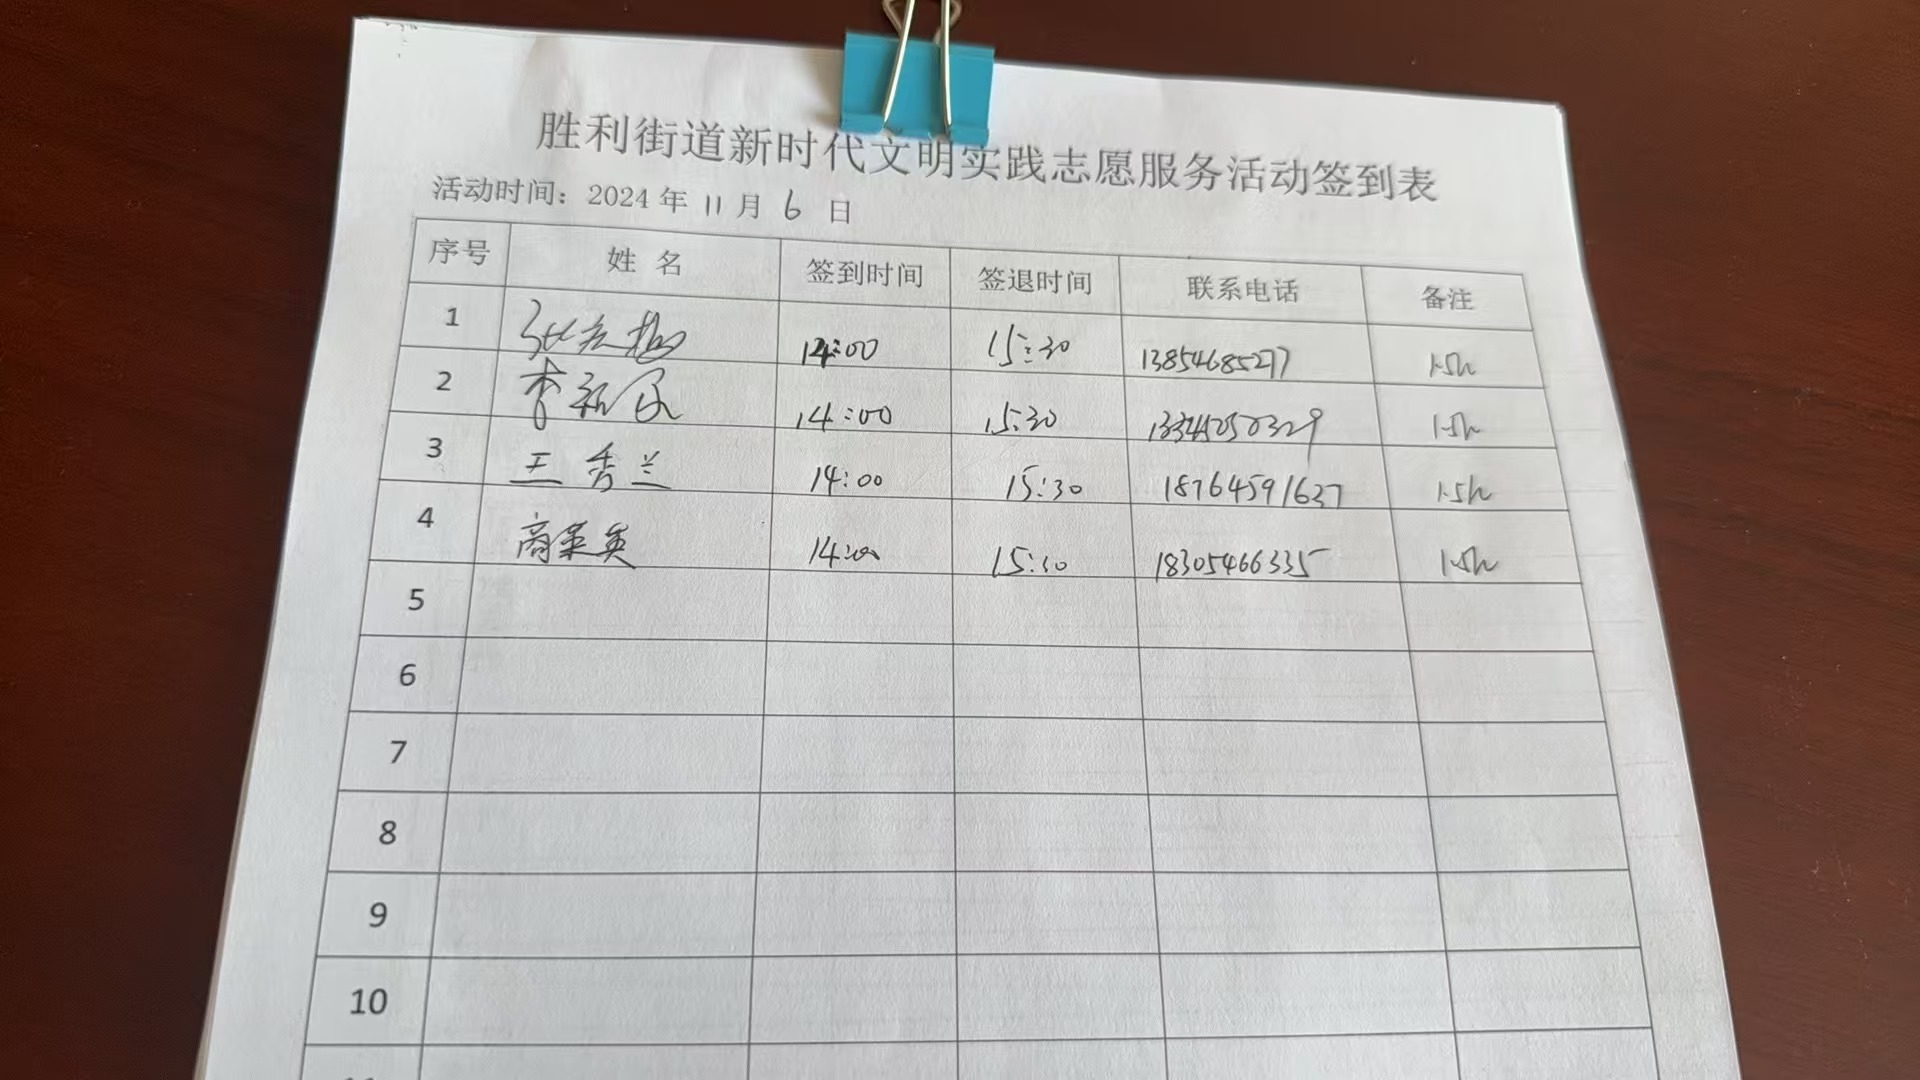 胜利街道新时代文明实践志愿服务活动签到表
活动时间：2024 年 11 月 6 日
序号 姓 名 签到时间 签退时间 联系电话 备注
1 14:00 15:30 13854685277 1.5h
2 李新民 14:00 15:30 1.5h
3 王秀兰 14:00 15:30 18764591627 1.5h
4 商英 14:00 15:30 18305466335 1.5h
5
6
7
8
9
10